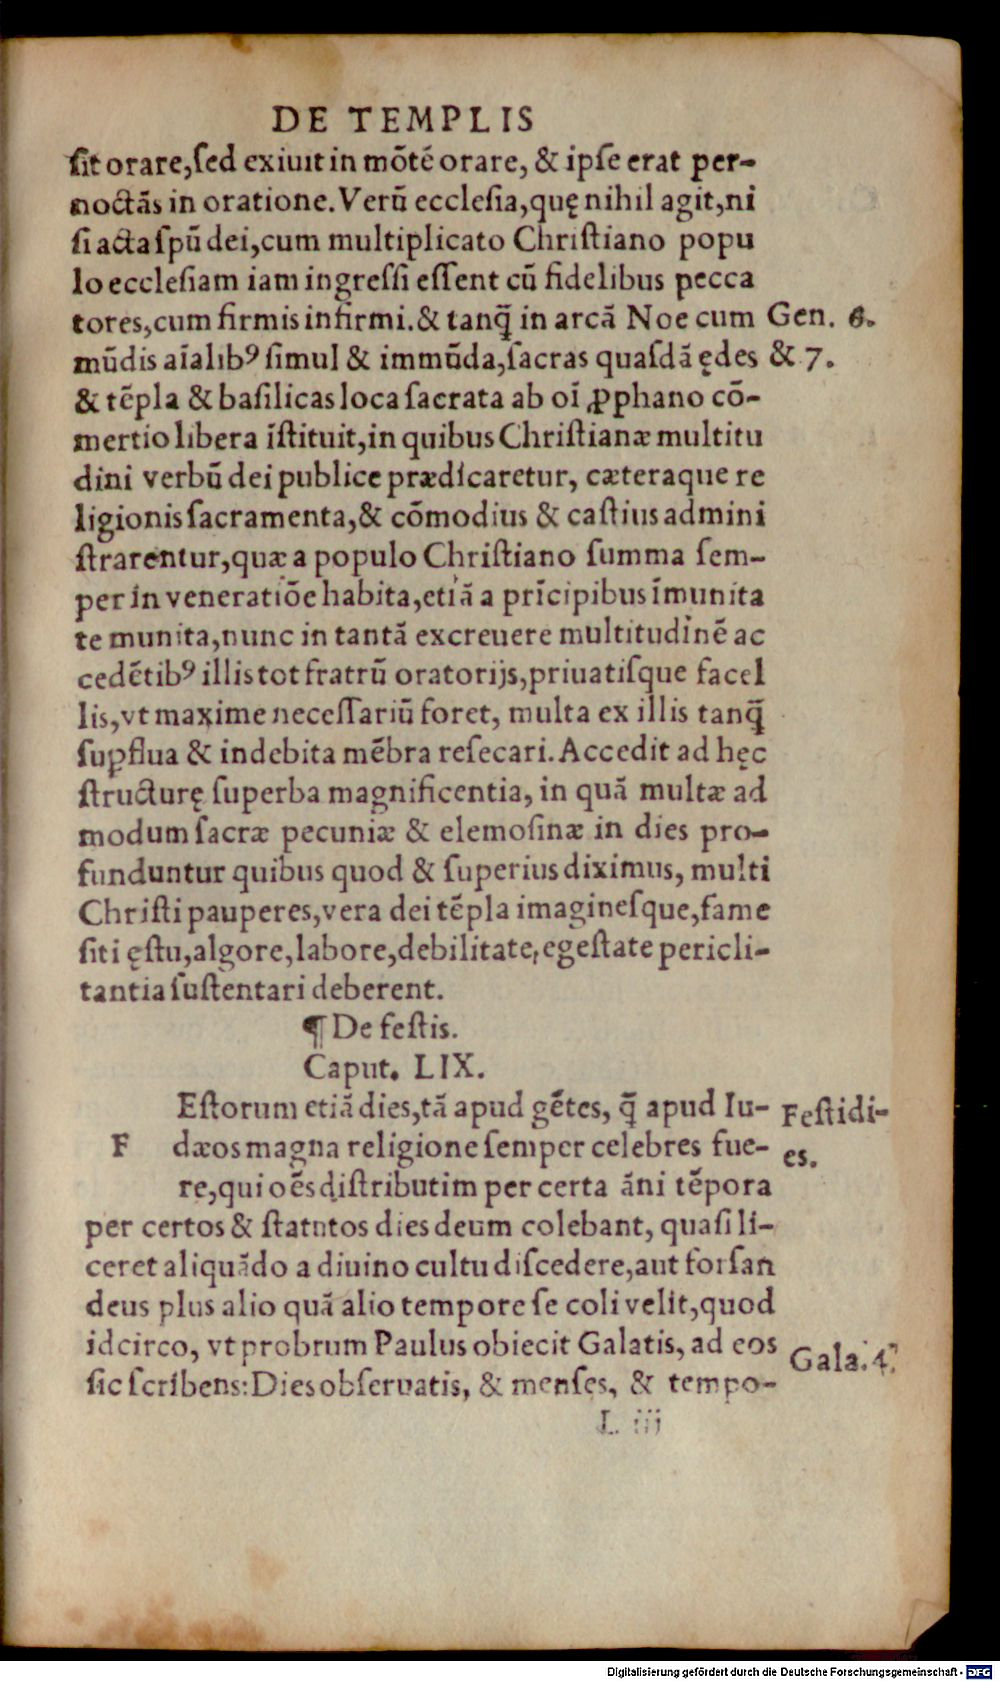 DE TEMPLIS
sit orare,sed exiuit in mōtē orare, & ipse erat per-
noctās in oratione. Verū ecclesia,quę nihil agit,ni
si acta spū dei,cum multiplicato Christiano popu
lo ecclesiam iam ingressi essent cū fidelibus pecca
tores,cum firmis infirmi.& tanq̄ in arcā Noe cum Gen. 6.
mūdis aīalibꝰ simul & immūda,sacras quasdā ędes & 7.
& tēpla & basilicas loca sacrata ab oī ꝓphano cō-
mertio libera īstituit,in quibus Christianæ multitu
dini verbū dei publice prædicaretur, cæteraque re
ligionis sacramenta,& cōmodius & castius admini
strarentur,quæ a populo Christiano summa sem-
per in veneratiōe habita,etiā a prīcipibus īmunita
te munita,nunc in tantā excreuere multitudinē ac
cedētibꝰ illis tot fratrū oratorijs,priuatisque facel
lis,vt maxime necessariū foret, multa ex illis tanq̄
suꝑflua & indebita mēbra resecari. Accedit ad hęc
structurę superba magnificentia, in quā multæ ad
modum sacræ pecuniæ & elemosinæ in dies pro-
funduntur quibus quod & superius diximus, multi
Christi pauperes,vera dei tēpla imaginesque,fame
siti ęstu,algore,labore,debilitate,egestate pericli-
tantia sustentari deberent.
¶ De festis.
Caput. LIX.
Estorum etiā dies,tā apud gētes, q̄ apud Iu- Festidi-
F dæos magna religione semper celebres fue- es.
re,qui oēs distributim per certa āni tēpora
per certos & statutos dies deum colebant, quasi li-
ceret aliquādo a diuino cultu discedere,aut forsan
deus plus alio quā alio tempore se coli velit,quod
idcirco, vt probrum Paulus obiecit Galatis, ad eos Gala.4.
sic scribens:Dies obseruatis, & menses, & tempo-
L iij
Digitalisierung gefördert durch die Deutsche Forschungsgemeinschaft - DFG